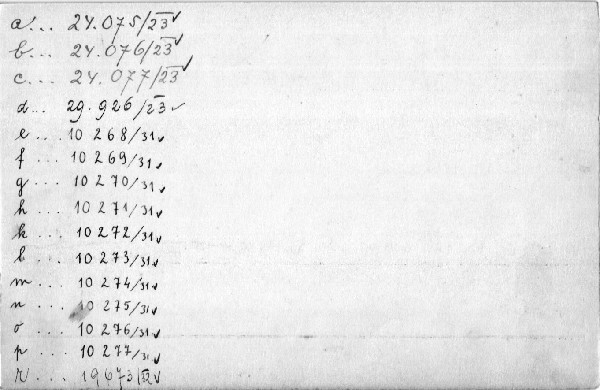 a... 24.075/23 ✓
b... 24.076/23 ✓
c... 24.077/23 ✓
d... 29.926/23 ✓
e ... 10 268/31 ✓
f ... 10 269/31 ✓
g ... 10 270/31 ✓
h ... 10 271/31 ✓
k ... 10 272/31 ✓
l ... 10 273/31 ✓
m ... 10 274/31 ✓
n ... 10 275/31 ✓
o ... 10 276/31 ✓
p ... 10 277/31 ✓
r ... 19673/32 ✓